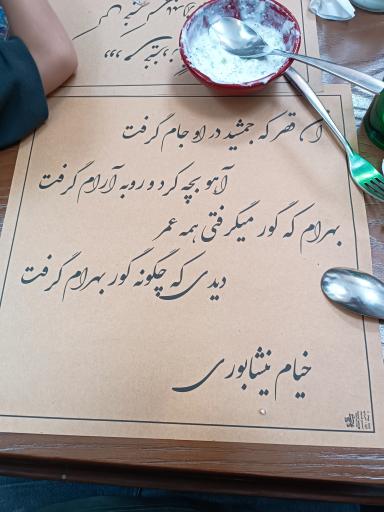 آن قصر که جمشید در او جام گرفت
آهو بچه کرد و روبه آرام گرفت
بهرام که گور میگرفتی همه عمر
دیدی که چگونه گور بهرام گرفت
خیام نیشابوری